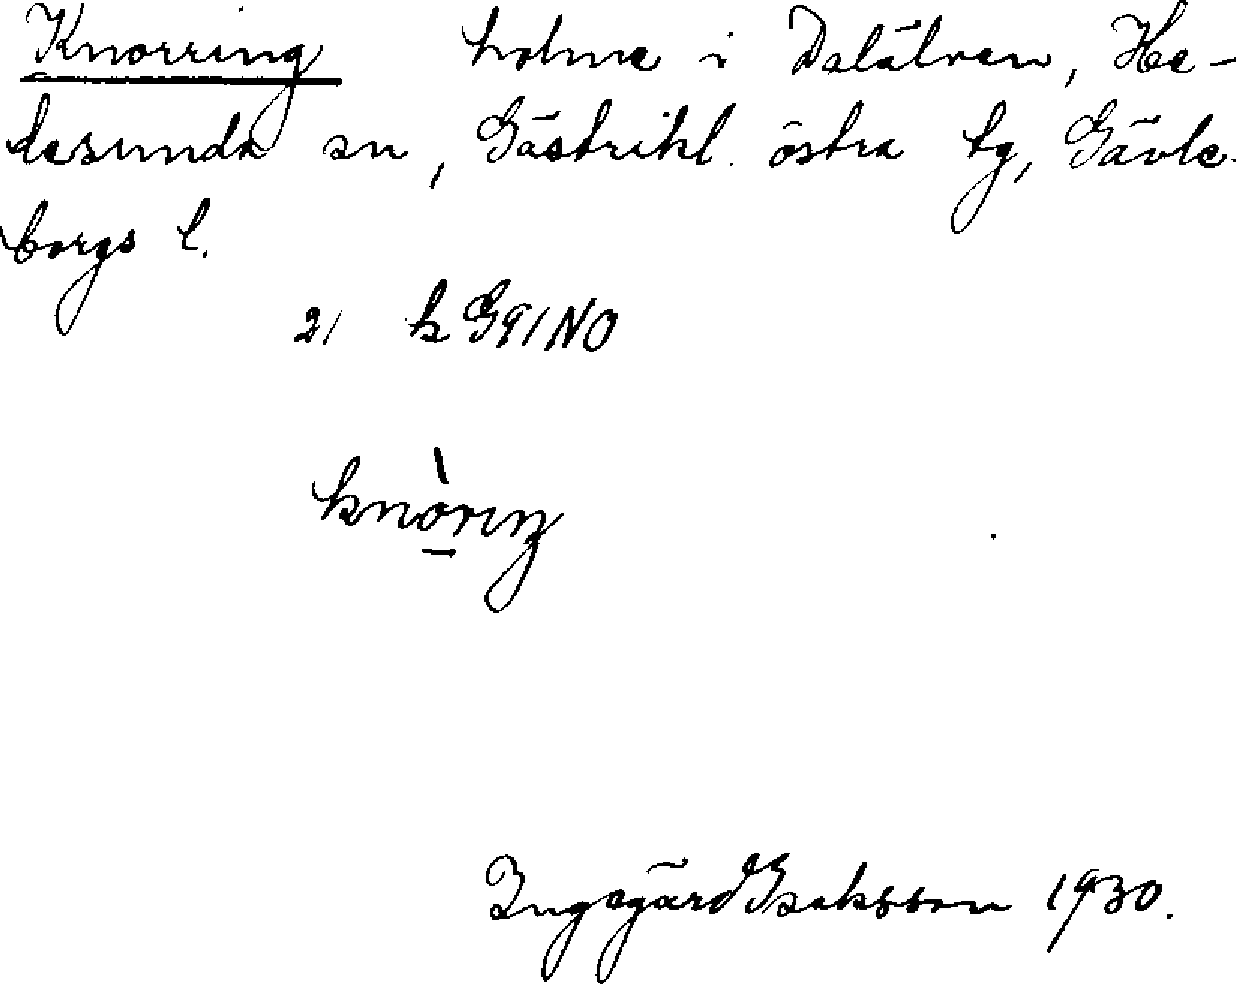 Knorring holme i Dalälven, He-
desunda sn, Gästrikl. östra tg, Gävle-
borgs l.
21 k G91NO
knòriŋ
Ingegärd Isaksson 1930.